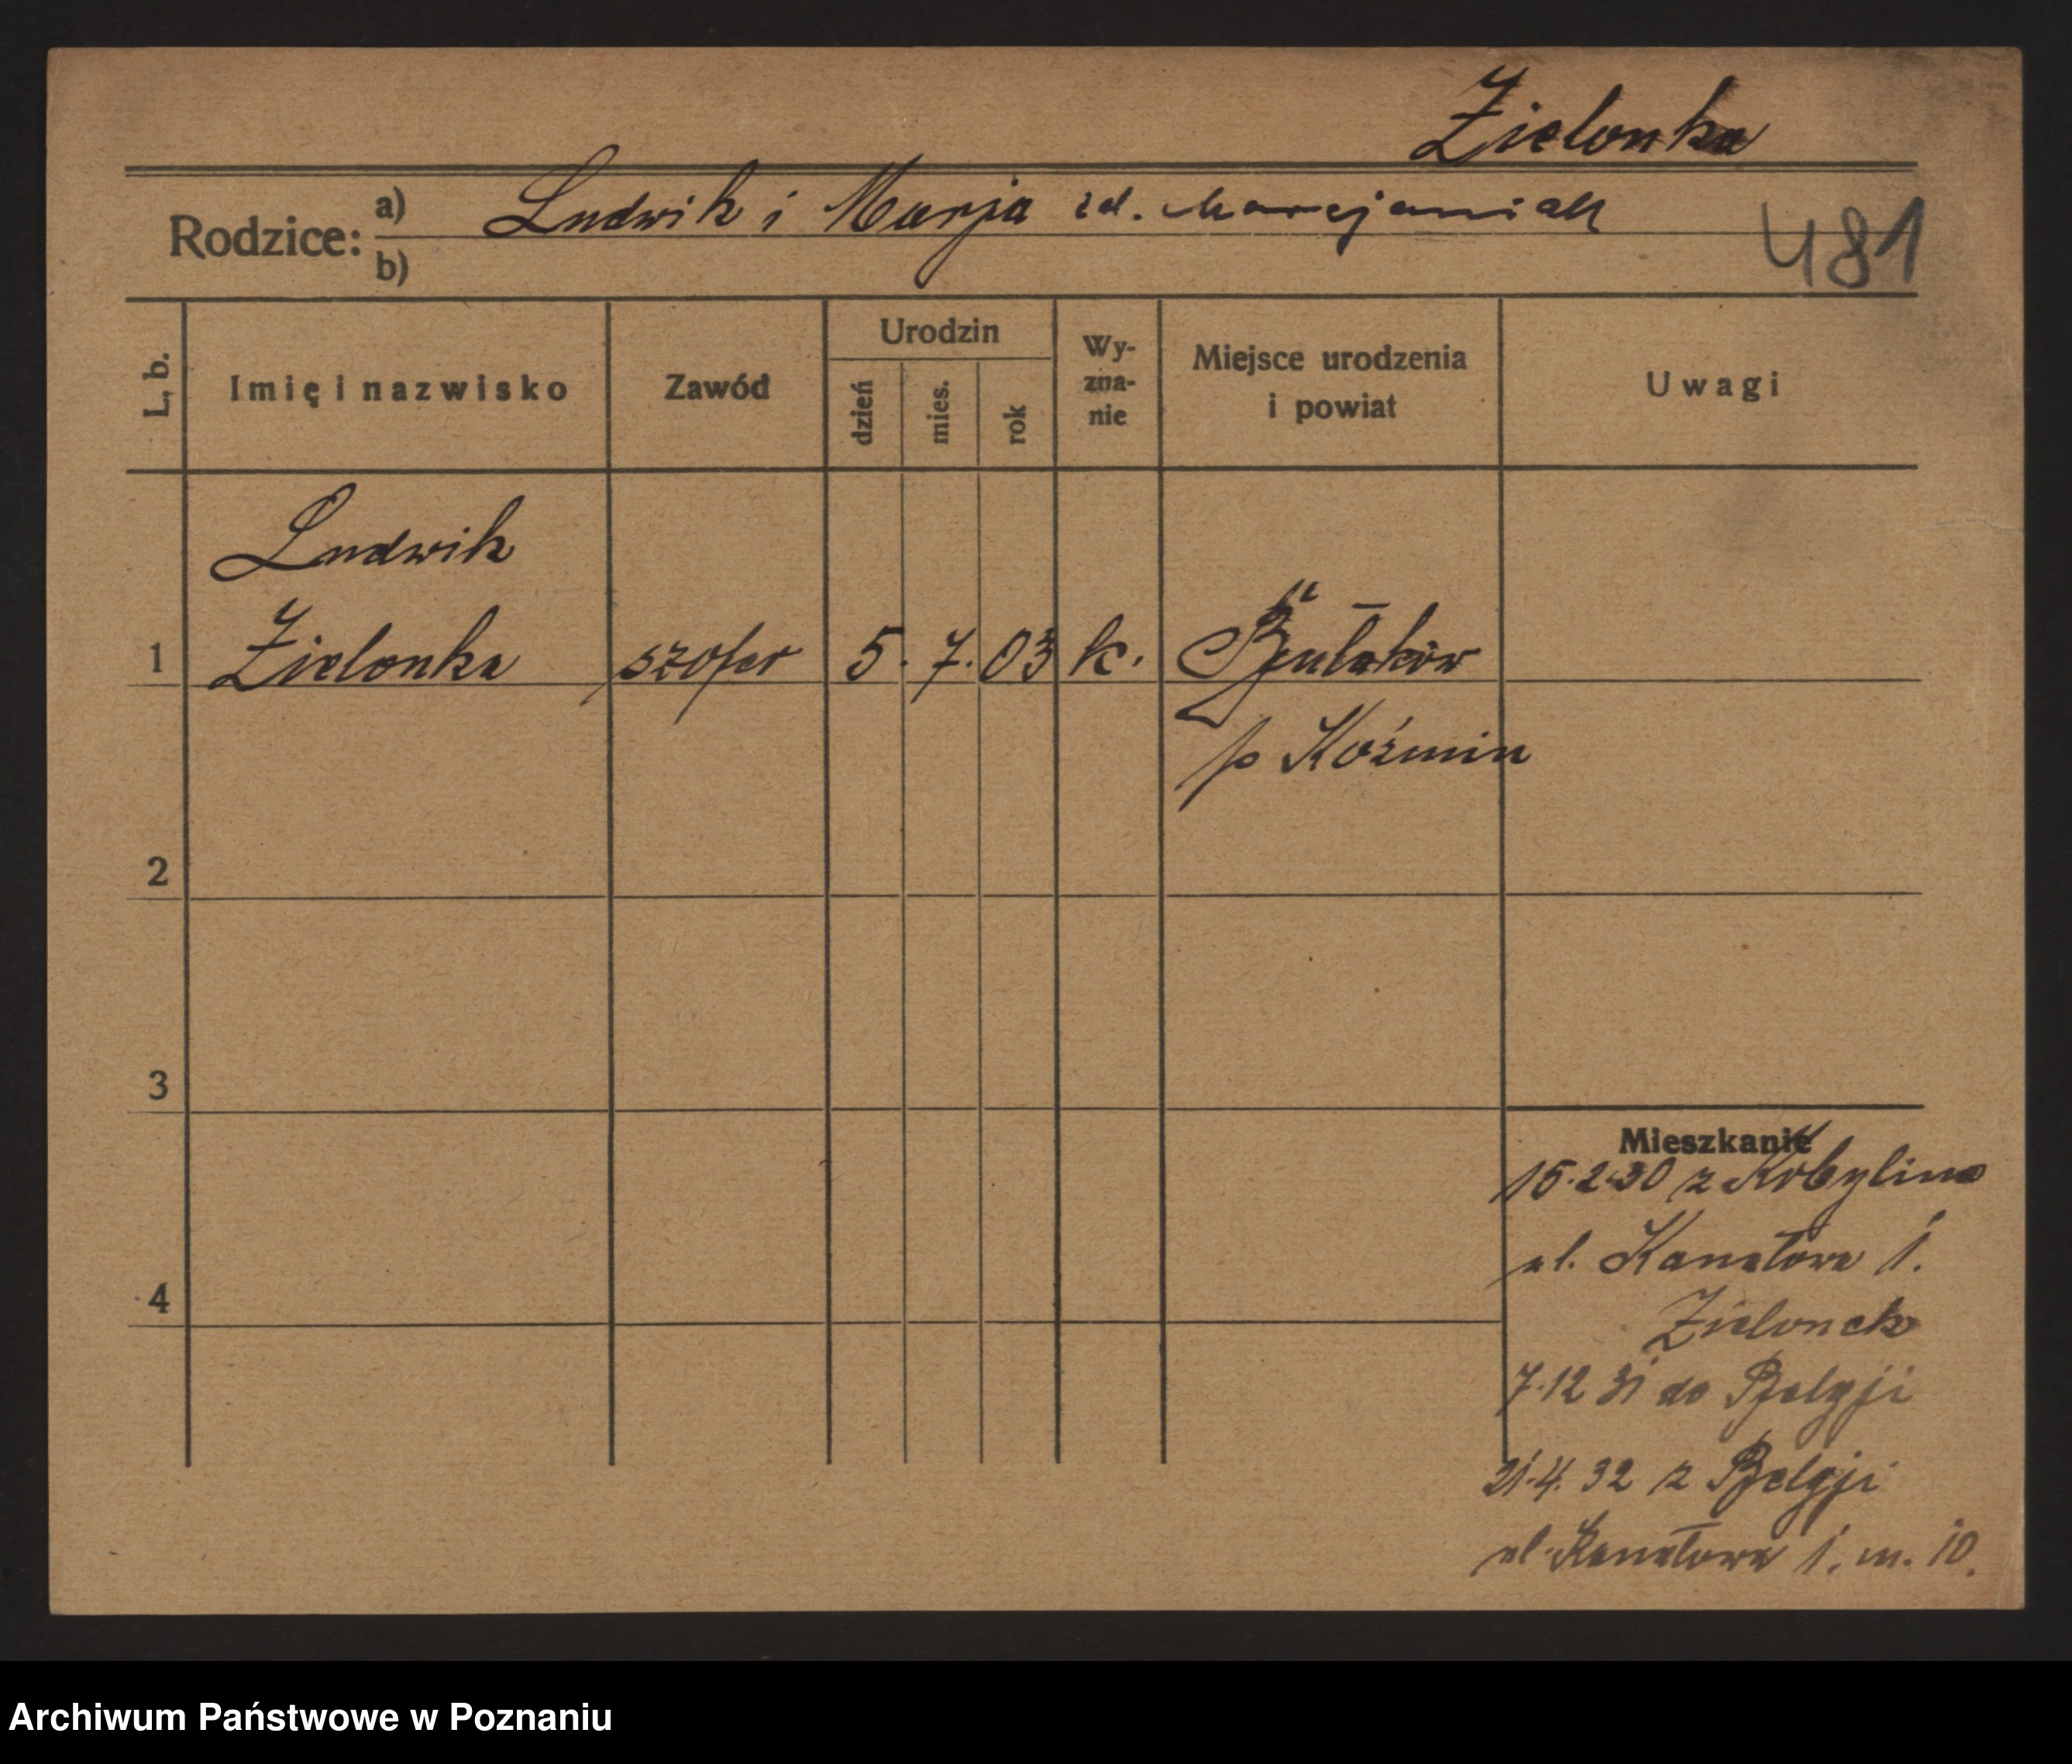 Zielonka
Rodzice: a) Ludwik i Marja zd. Marcjaniak
b)
481
L. b.
Imię i nazwisko
Zawód
Urodzin
dzień
mies.
rok
Wy-
zna-
nie
Miejsce urodzenia
i powiat
Uwagi
Ludwik
1 Zielonka szofer 5. 7. 03 k. Bułaków
p Koźmin
2
3
4
Mieszkanie
15.2.30 z Kobylina
ul. Kanałowa 1.
Zielonek
7.12 31 do Belgji
21.4.32 z Belgji
ul. Kanałowa 1. m. 10.
Archiwum Państwowe w Poznaniu